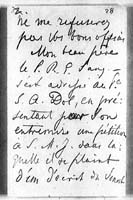 28
ne me refuserez
pas Vos bons offices
Mon beau père
le P. R. P.
s'est adressé au P.
S. A. en pré
sentant par son
entremise une pétition
à S. M. dans la
quelle il se plaint
d'un Décret du Sénat